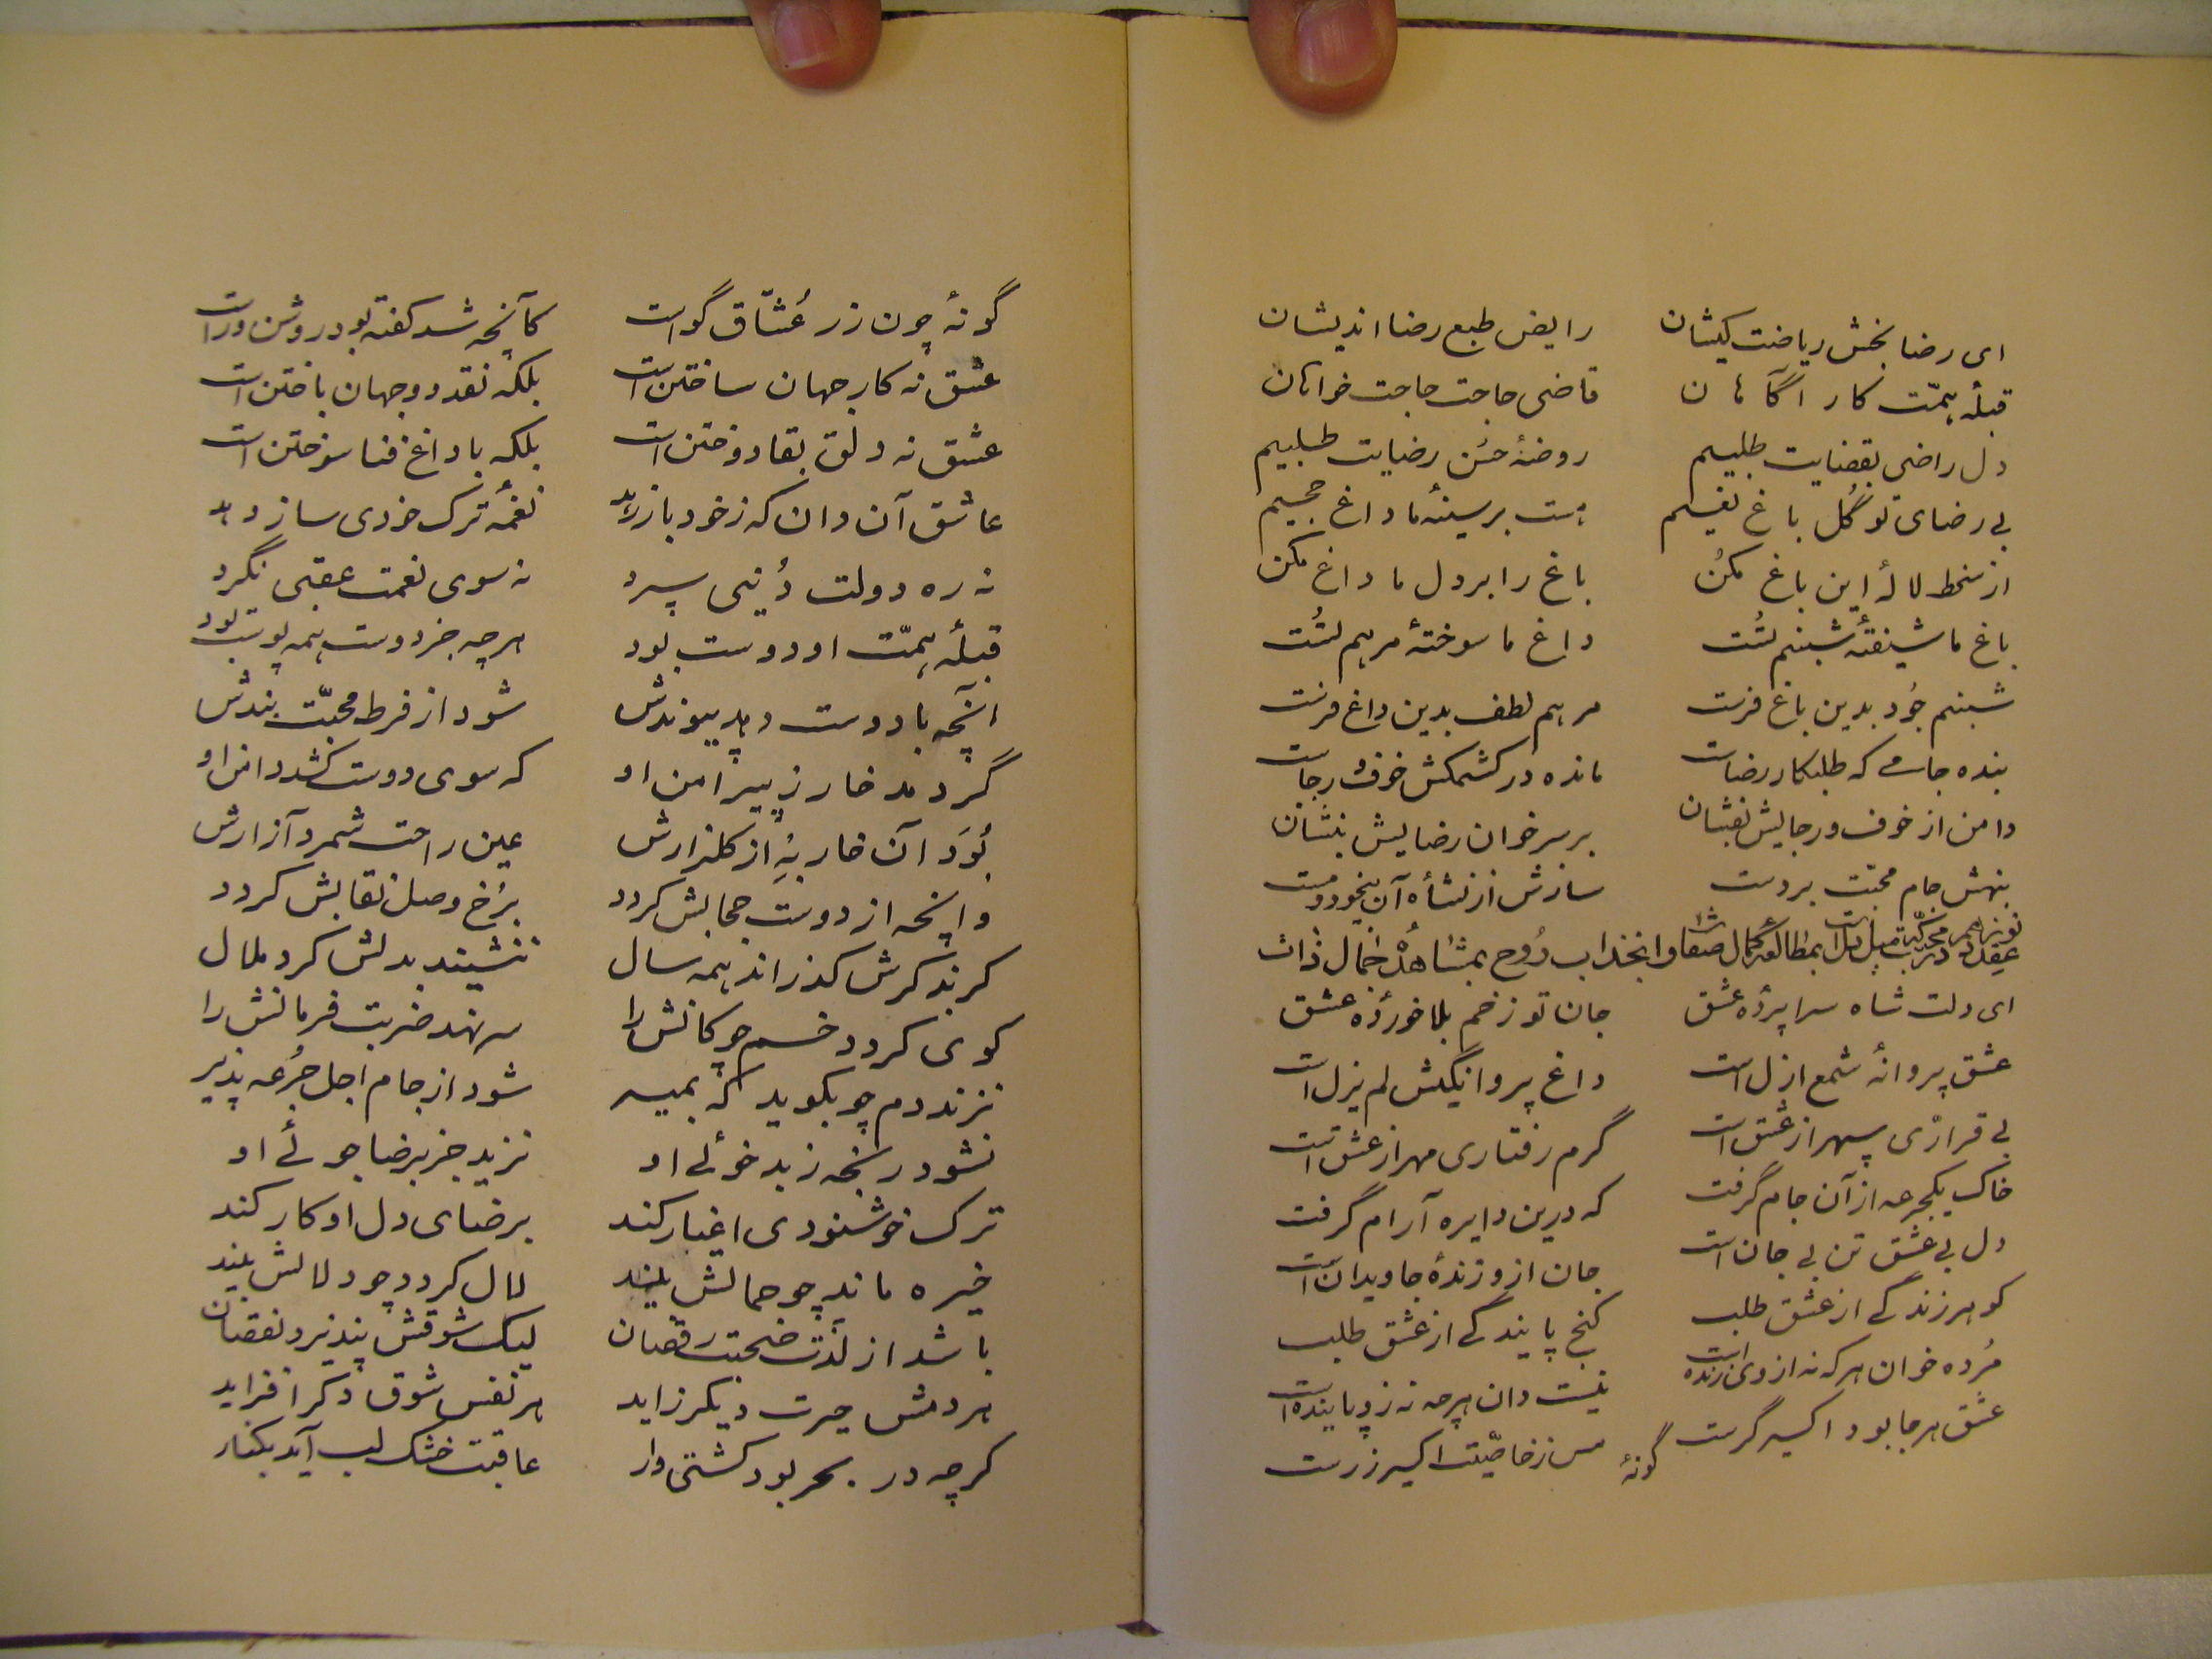 ای رضا بخش ریاضت کیشان رایض طبع رضا اندیشان
قبلهٔ همّت کار آگاهان قاضی حاجت حاجت خواهان
دل راضی بقضایت طلبیم روضهٔ حسن رضایت طلبیم
بی رضای تو گل باغ نعیم هست بر سینهٔ ما داغ جحیم
از سخط لالهٔ این باغ مکن باغ را بر دل ما داغ مکن
باغ ما شیفتهٔ شبنم تست داغ ما سوختهٔ مرهم تست
شبنم جود بدین باغ فرست مرهم لطف بدین داغ فرست
بنده جامی که طلبکار رضاست مانده در کشمکش خوف و رجاست
دامن از خوف و رجایش بفشان بر سر خوان رضایش بنشان
بنهش جام محبّت بر دست سازش از نشأه آن بیخود و مست
عقد نوزدهم در محبّت که میل دلست بمطالعهٔ کمال صفات و انجذاب روح بمشاهدهٔ جمال ذات
ای دلت شاه سراپردهٔ عشق جان تو زخم بلا خوردهٔ عشق
عشق پروانهٔ شمع ازل است داغ پروانگیش لم یزل است
بی قراری سپهر از عشق است گرم رفتاری مهر از عشق است
خاک یکجرعه از آن جام گرفت که درین دایره آرام گرفت
دل بی عشق تن بی جان است جان ازو زندهٔ جاویدان است
گوهر زندگی از عشق طلب گنج پایندگی از عشق طلب
مرده خوان هر که نه از وی زنده است نیست دان هرچه نه زو پاینده است
عشق هر جا بود اکسیر گرست مس ز خاصیّت اکسیر زرست
گونهٔ
گونهٔ چون زر عشّاق گواست کآنچه شد گفته بود روشن و راست
عشق نه کار جهان ساختن است بلکه نقد دو جهان باختن است
عشق نه دلق بقا دوختن است بلکه با داغ فنا سوختن است
عاشق آن دان که ز خود باز رهد نغمهٔ ترک خودی ساز دهد
نه ره دولت دنیی سپرد نه سوی نعمت عقبی نگرد
قبلهٔ همّت او دوست بود هر چه جز دوست همه پوست بود
آنچه با دوست دهد پیوندش شود از فرط محبّت بندش
گر دمد خار ز پیرامن او که سوی دوست کشد دامن او
بود آن خار به از گلزارش عین راحت شمرد آزارش
وانچه از دوست حجابش گردد برخ وصل نقابش گردد
گر بذکرش گذراند همه سال ننشیند بدلش گرد ملال
گوی گردد خم چوگانش را سر نهد ضربت فرمانش را
نزند دم چو بگوید که بمیر شود از جام اجل جرعه پذیر
نشود رنجه ز بد خوئی او نزید جز برضا جوئی او
ترک خوشنودی اغیار کند برضای دل او کار کند
خیره ماند چو جمالش بیند لال گردد چو دلالش بیند
باشد از لذّت صحبت رقصان لیک شوقش نپذیرد نقصان
هر دمش حیرت دیگر زاید هر نفس شوق دگر افزاید
گرچه در بحر بود کشتی وار عاقبت خشک لب آید بکنار